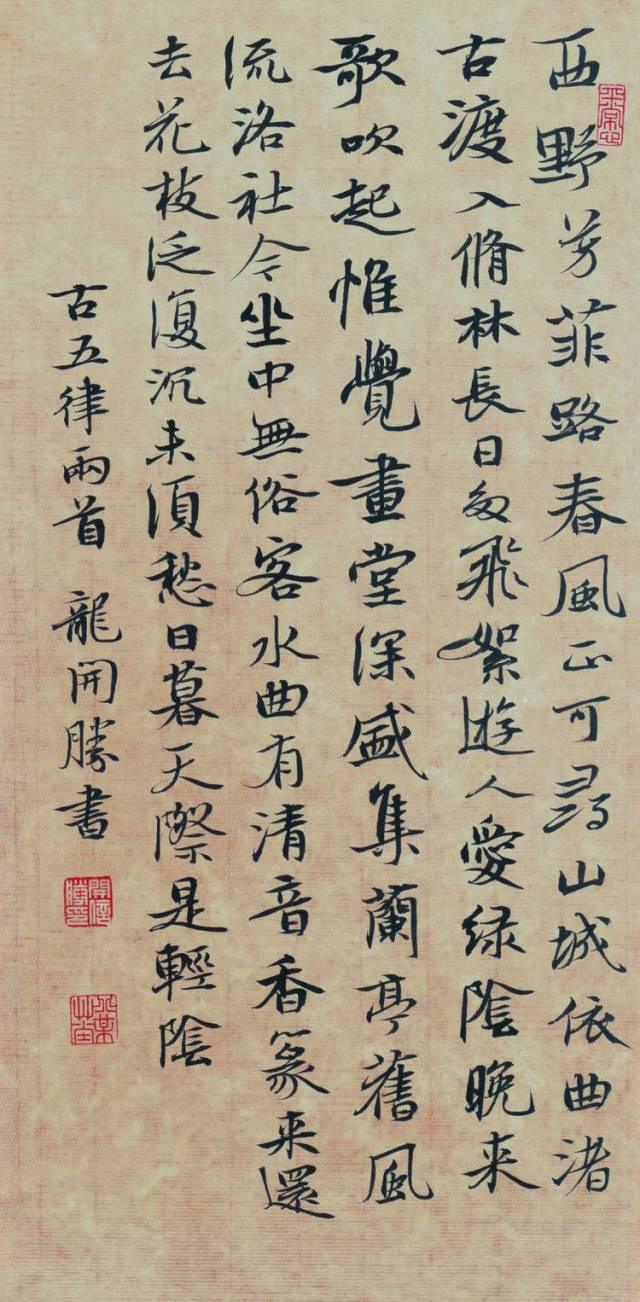 西野芳菲路春風正可尋山城依曲渚
古渡入脩林長日多飛絮遊人愛綠陰晚来
歌吹起惟覺畫堂深盛集蘭亭舊風
流洛社今坐中無俗客水曲有清音香篆来還
去花枝泛復沉未須愁日暮天際是輕陰
古五律兩首 龍開勝書
平常心